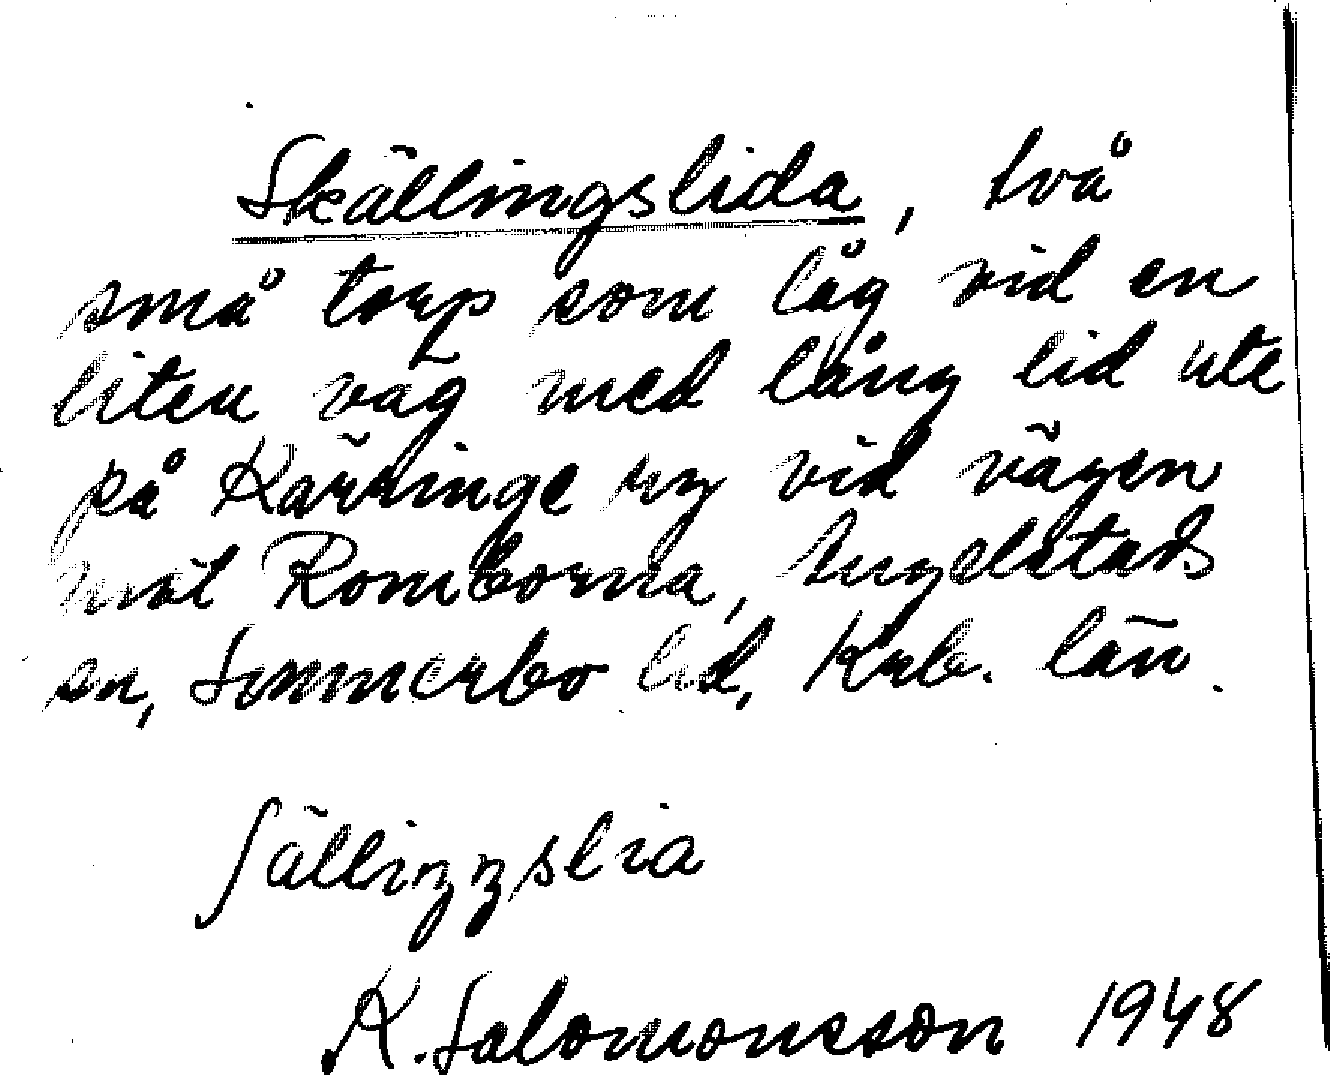 Skällingslida, två
små torp som låg vid en
liten väg med lång lid ute
på Kärringe ry vid vägen
mot Romborna, Ingelstads
sn, Simmerbo lid, Krb. län.
ʃälliŋŋslia
K. Salomonsson 1948